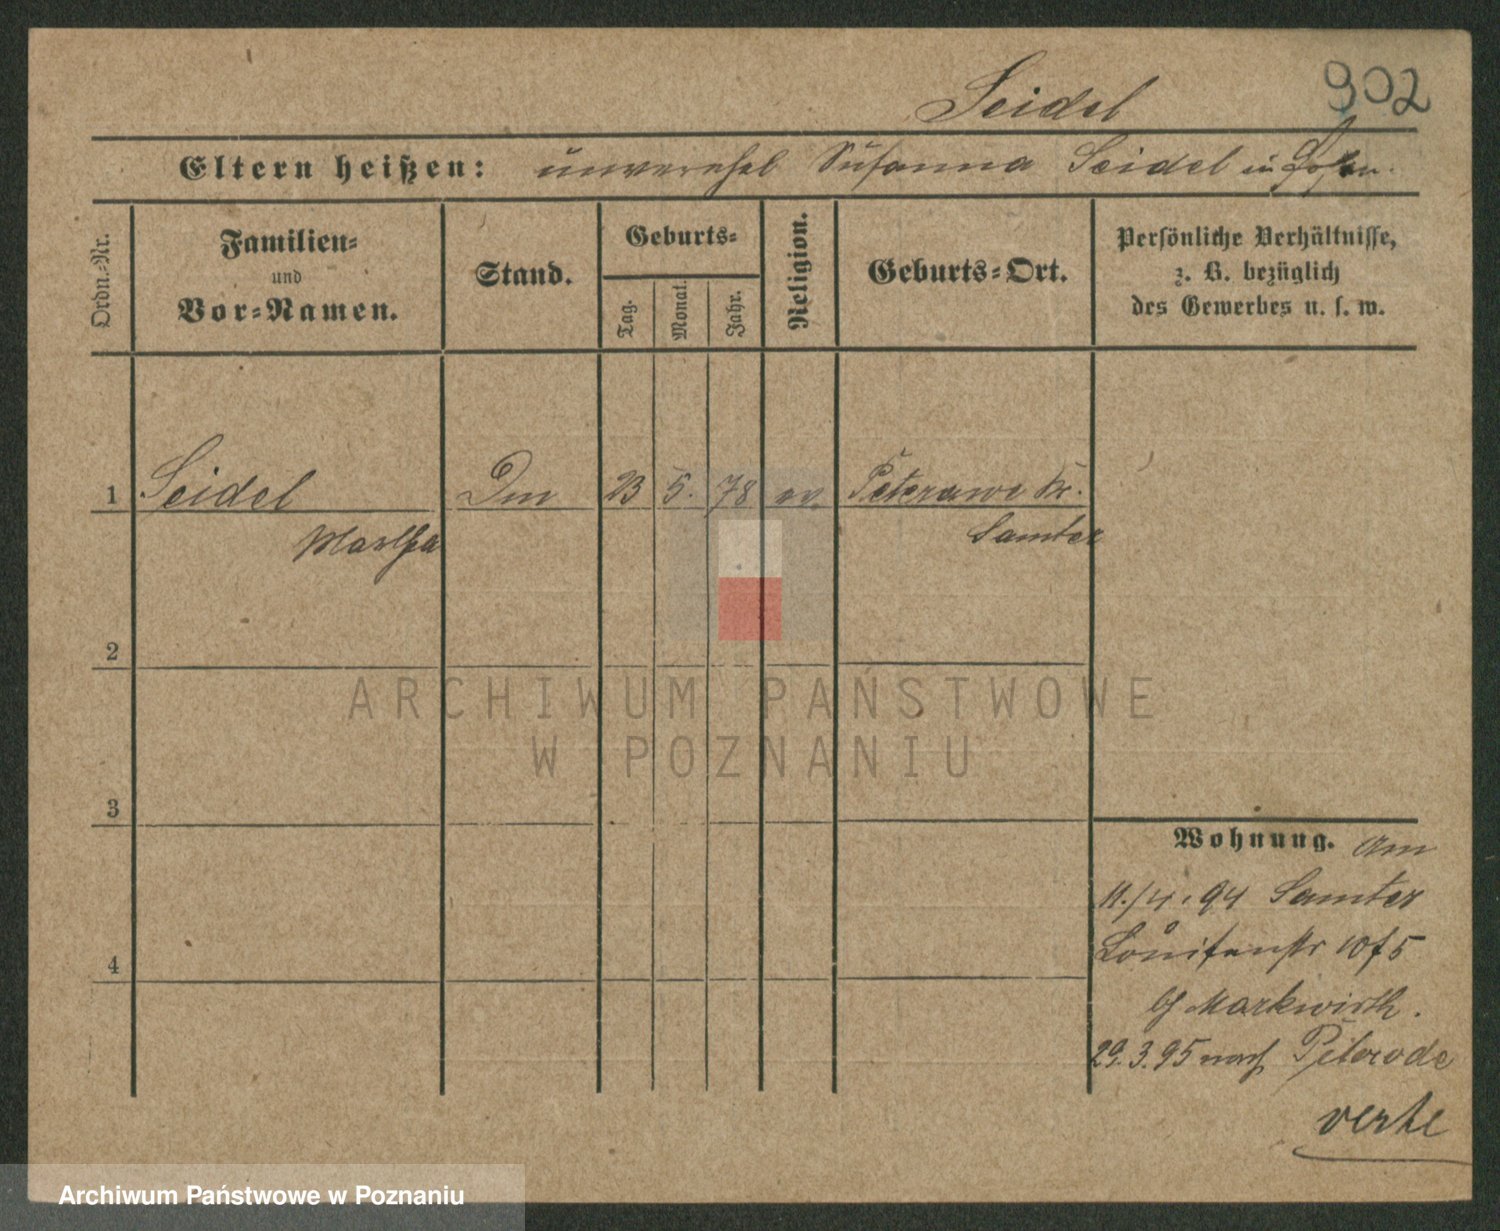 Seidel 902
Eltern heißen: unverehel Susanna Seidel in Posen.
Ordn.-Nr.
Familien-
und
Vor-Namen.
Stand.
Geburts-
Tag.
Monat.
Jahr.
Religion.
Geburts-Ort.
Persönliche Verhältnisse,
z. B. bezüglich
des Gewerbes u. s. w.
1 Seidel Dm 23 5. 78 ev. Peterawe Kr.
Martha Samter
2
ARCHIWUM PAŃSTWOWE
W POZNANIU
3
Wohnung. Am
11./4. 94 Samter
Louisenstr 10
4
b/ Markwirth.
29.3.95 nach
verte
Archiwum Państwowe w Poznaniu